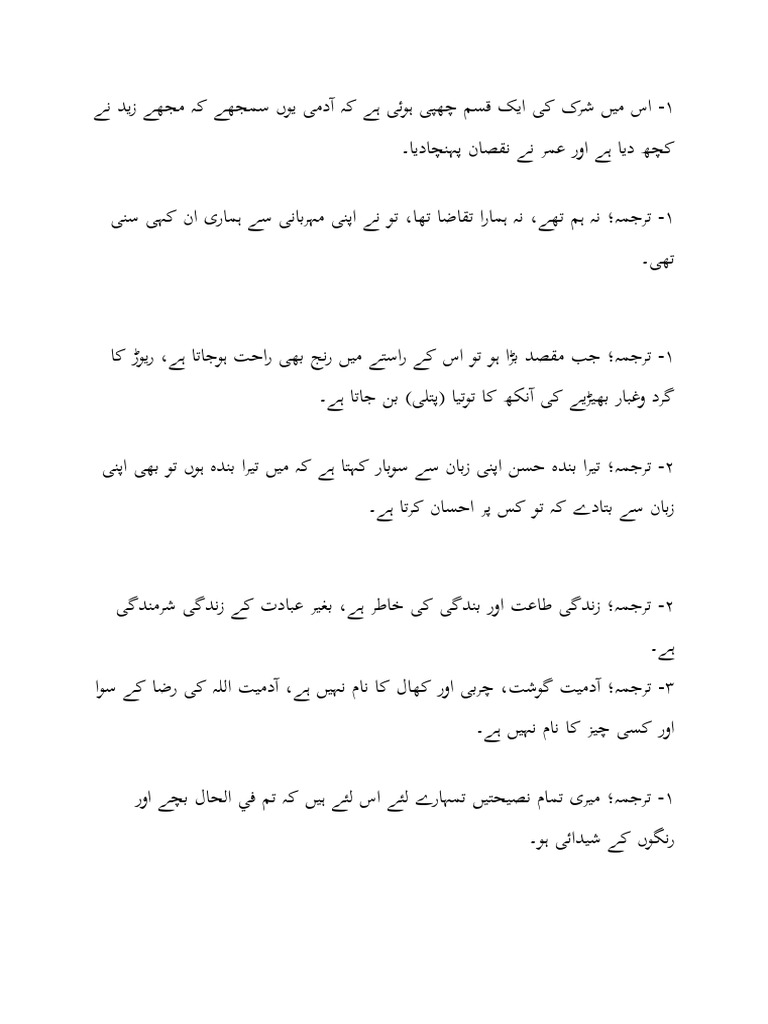 ۱- اس میں شرک کی ایک قسم چھپی ہوئی ہے کہ آدمی یوں سمجھے کہ مجھے زید نے
کچھ دیا ہے اور عمر نے نقصان پہنچادیا۔
۱- ترجمہ؛ نہ ہم تھے، نہ ہمارا تقاضا تھا، تو نے اپنی مہربانی سے ہماری ان کہی سنی
تھی۔
۱- ترجمہ؛ جب مقصد بڑا ہو تو اس کے راستے میں رنج بھی راحت ہوجاتا ہے، ریوڑ کا
گرد وغبار بھیڑیے کی آنکھ کا توتیا (پتلی) بن جاتا ہے۔
۲- ترجمہ؛ تیرا بندہ حسن اپنی زبان سے سوبار کہتا ہے کہ میں تیرا بندہ ہوں تو بھی اپنی
زبان سے بتادے کہ تو کس پر احسان کرتا ہے۔
۲- ترجمہ؛ زندگی طاعت اور بندگی کی خاطر ہے، بغیر عبادت کے زندگی شرمندگی
ہے۔
۳- ترجمہ؛ آدمیت گوشت، چربی اور کھال کا نام نہیں ہے، آدمیت اللہ کی رضا کے سوا
اور کسی چیز کا نام نہیں ہے۔
۱- ترجمہ؛ میری تمام نصیحتیں تسہارے لئے اس لئے ہیں کہ تم في الحال بچے اور
رنگوں کے شیدائی ہو۔